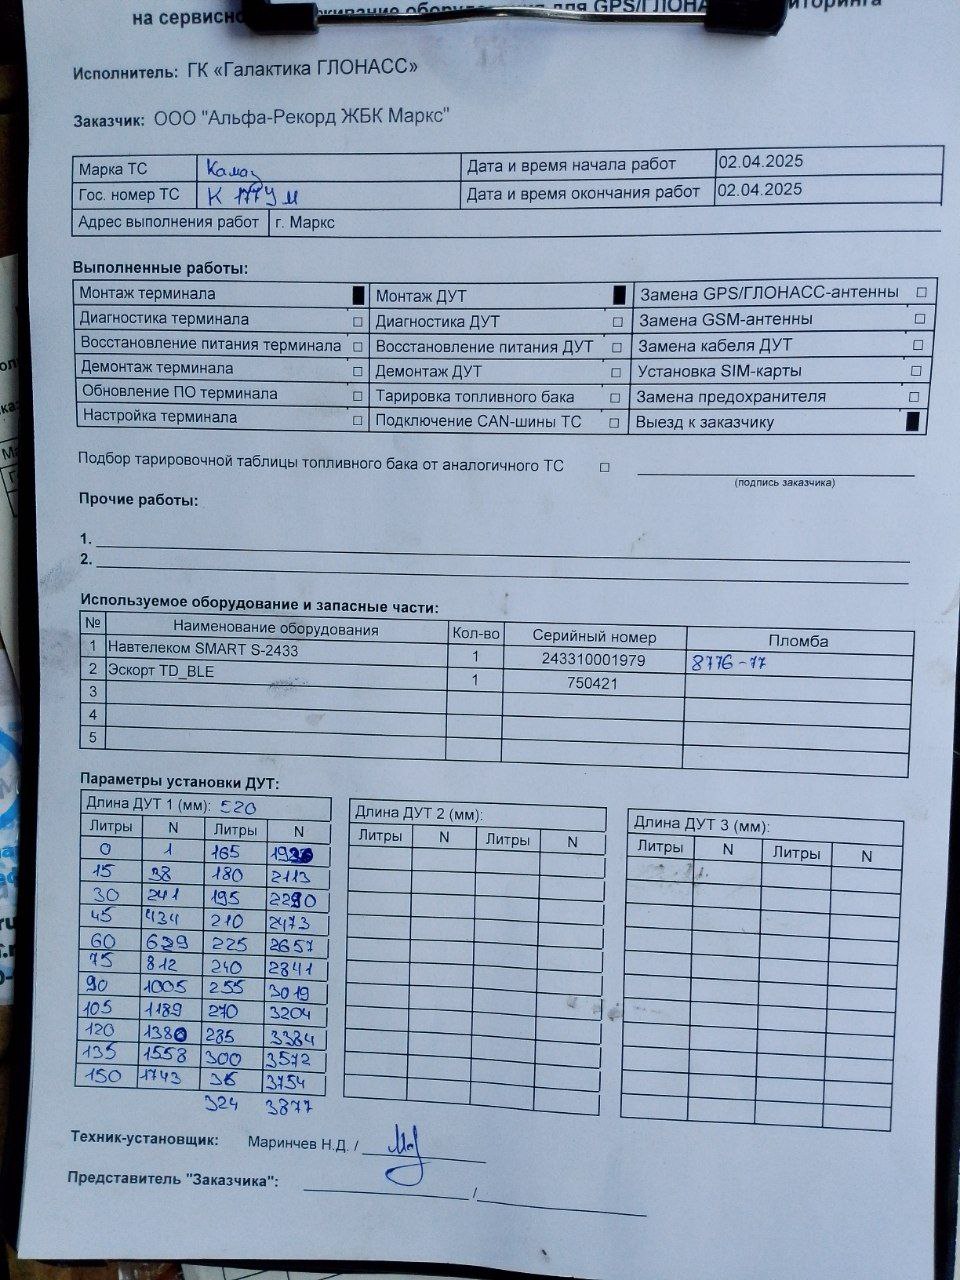 на сервисное обслуживание оборудования для GPS/ГЛОНАСС мониторинга
Исполнитель: ГК «Галактика ГЛОНАСС»
Заказчик: ООО "Альфа-Рекорд ЖБК Маркс"
Марка ТС Камаз Дата и время начала работ 02.04.2025
Гос. номер ТС К 177 УМ Дата и время окончания работ 02.04.2025
Адрес выполнения работ г. Маркс
Выполненные работы:
Монтаж терминала ■ Монтаж ДУТ ■ Замена GPS/ГЛОНАСС-антенны □
Диагностика терминала □ Диагностика ДУТ □ Замена GSM-антенны □
Восстановление питания терминала □ Восстановление питания ДУТ □ Замена кабеля ДУТ □
Демонтаж терминала □ Демонтаж ДУТ □ Установка SIM-карты □
Обновление ПО терминала □ Тарировка топливного бака □ Замена предохранителя □
Настройка терминала □ Подключение CAN-шины ТС □ Выезд к заказчику ■
Подбор тарировочной таблицы топливного бака от аналогичного ТС □
(подпись заказчика)
Прочие работы:
1.
2.
Используемое оборудование и запасные части:
№ Наименование оборудования Кол-во Серийный номер Пломба
1 Навтелеком SMART S-2433 1 243310001979 8776-77
2 Эскорт TD_BLE 1 750421
3
4
5
Параметры установки ДУТ:
Длина ДУТ 1 (мм): 520 Длина ДУТ 2 (мм): Длина ДУТ 3 (мм):
Литры N Литры N Литры N Литры N Литры N Литры N
0 1 165
15 38 180 2113
30 241 195 2290
45 434 210 2473
60 629 225 2657
75 812 240 2841
90 1005 255 3019
105 1189 270 3204
120 1380 285 3384
135 1558 300 3572
150 1743 3754
324 3877
Техник-установщик: Маринчев Н.Д. /
Представитель "Заказчика": /